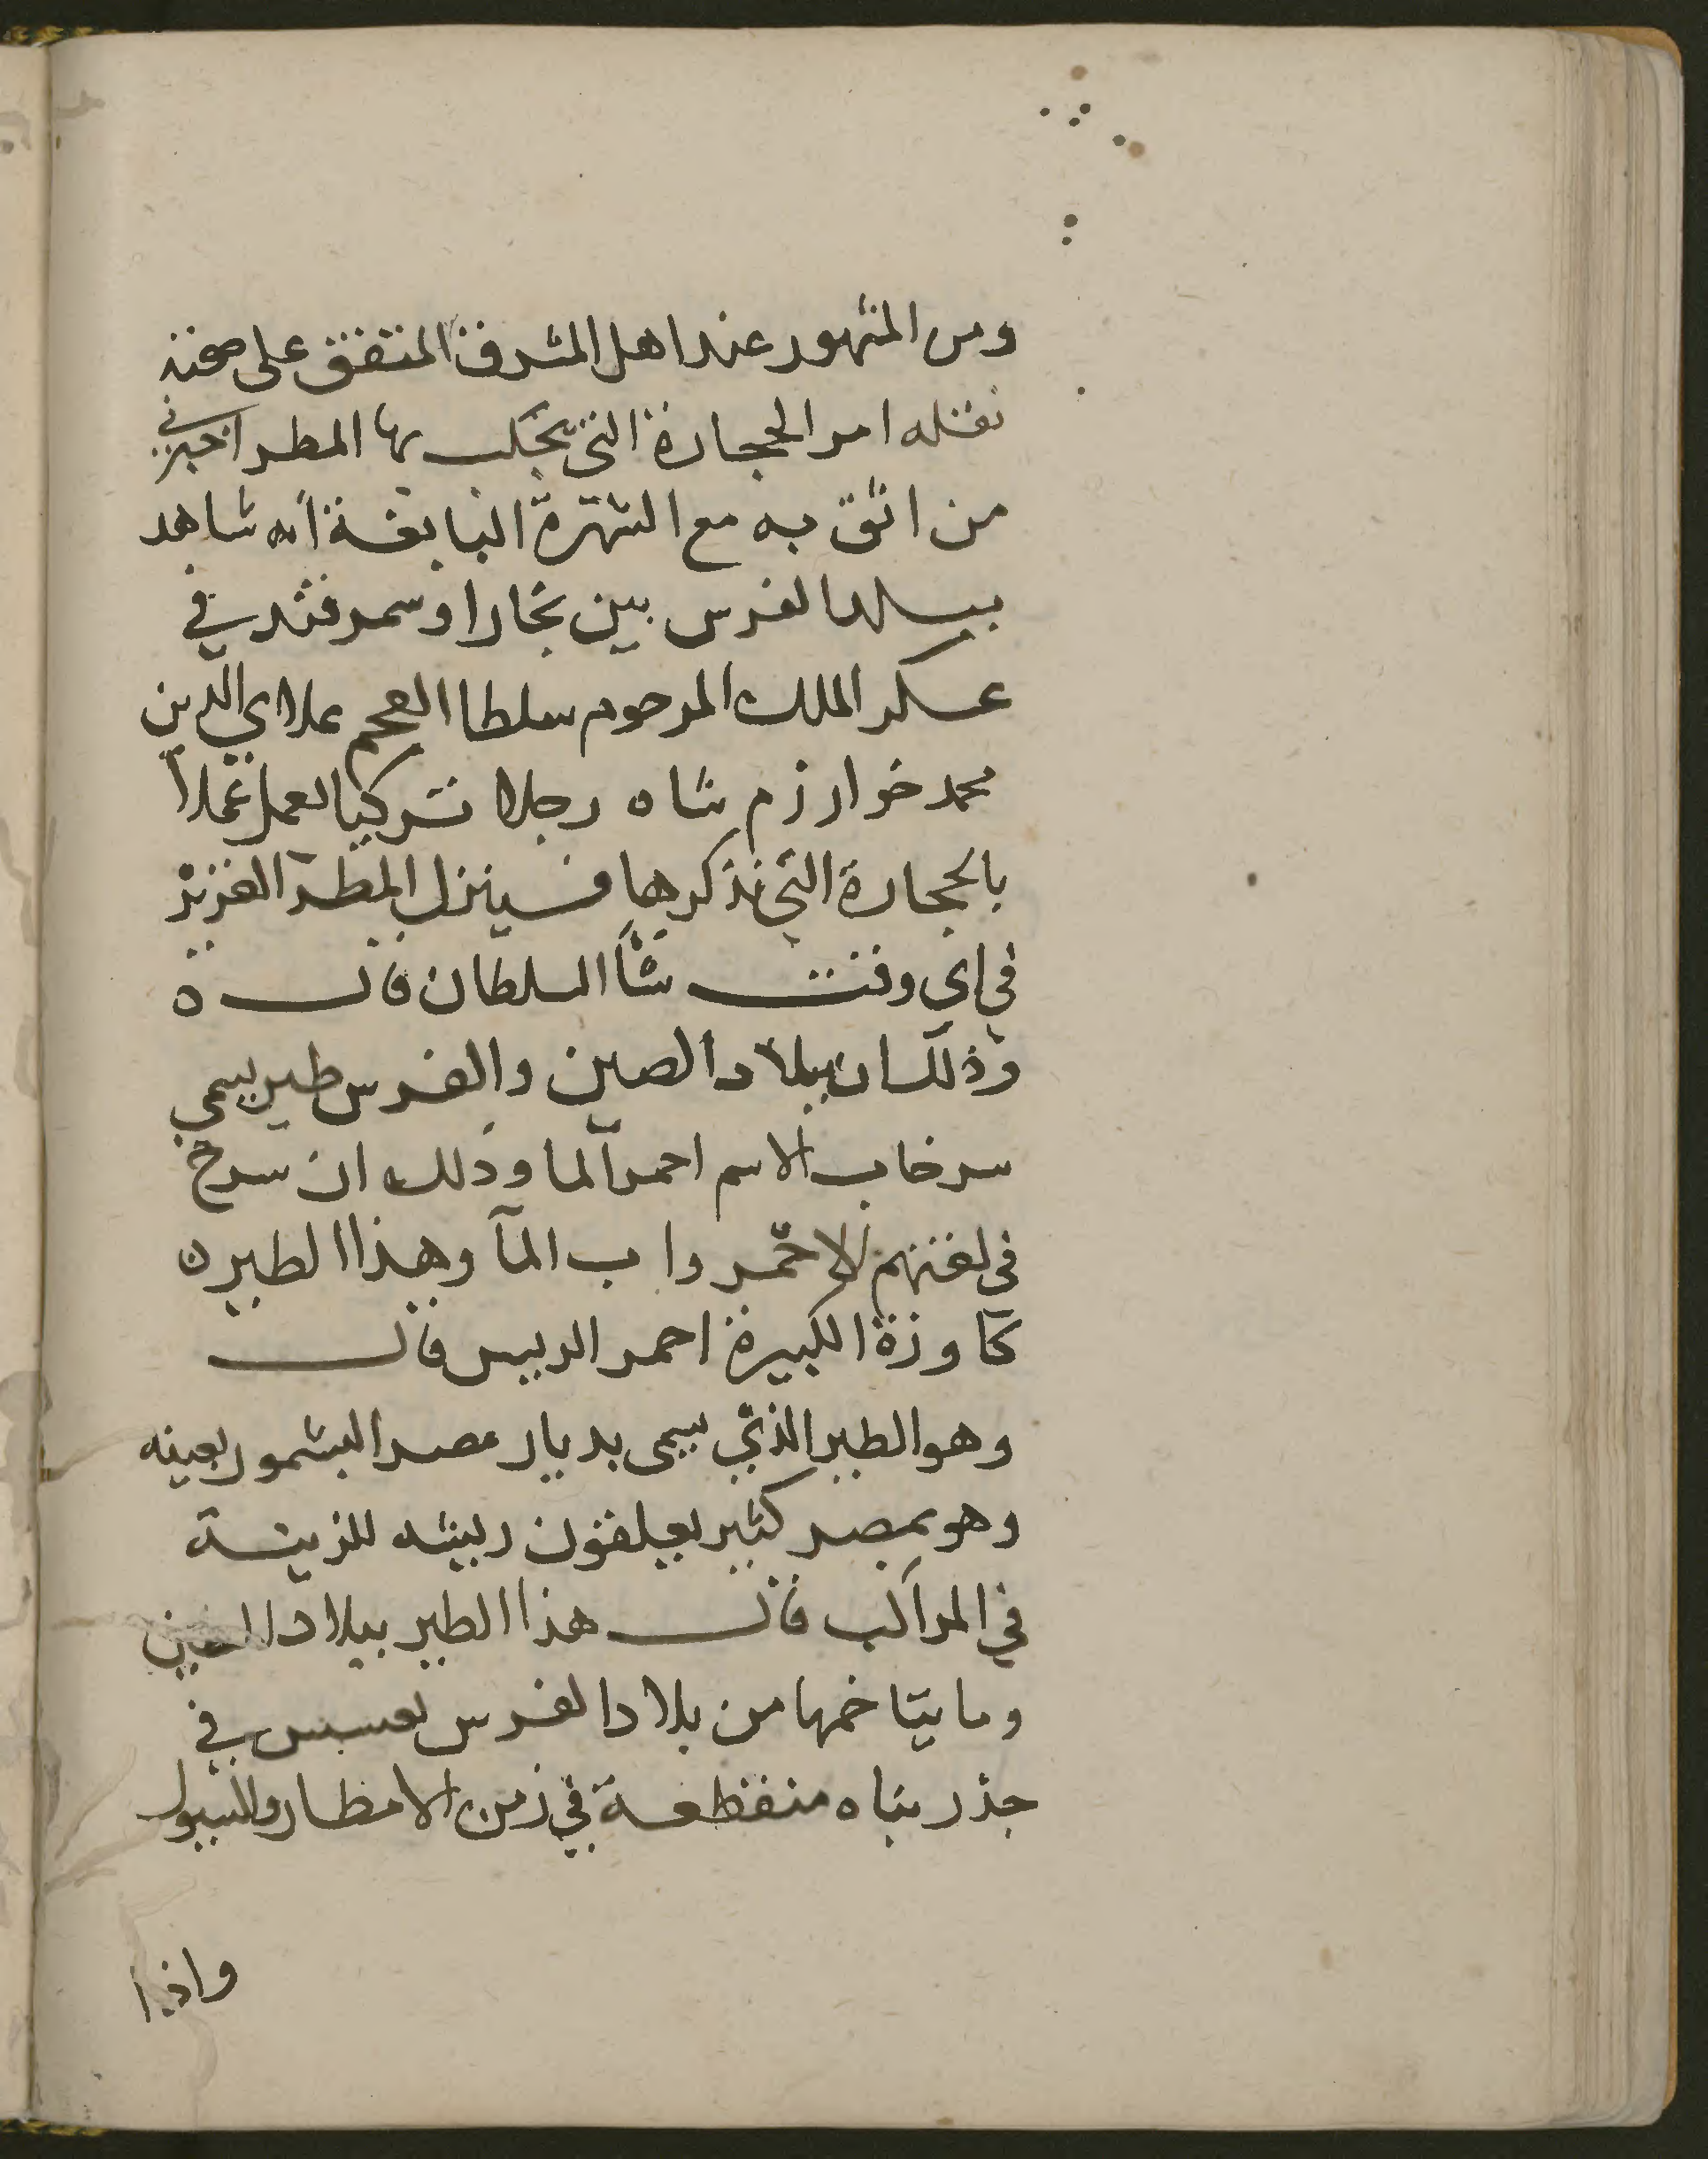 ومن المشهور عند اهل المشرق المتفق على صحته
نقله امر الحجارة التي يجلب بها المطر اخبرني
من اثق به مع الشهرة البايغة انه شاهد
ببلد الفرس بين بخارا وسمرقند في
عسكر الملك المرحوم سلطا العجم علاي الدين
محمد خوارزم شاه رجلا تركيا يعمل عملا
بالحجارة التي نذكرها فسينزل المطر الغزير
في اي وقت شآ السلطان قال ه
وذلك ان ببلاد الصين والفرس طير يسمي
سرخاب الاسم احمر الما وذلك ان سرخ
في لغتهم الاحمر واب المآ وهذا الطير ن
كا وزة الكبيرة احمر الريس قال
وهو الطير الذي يسمى بديار مصر البشمور بعينه
وهو بمصر كثير يعلقون ريشه للزينة
في المراكب قال هذا الطير ببلاد الصين
وما يتاخمها من بلاد الفرس يعسس في
جذر مياه منقطعة في زمن الامطار والسيول
واذا